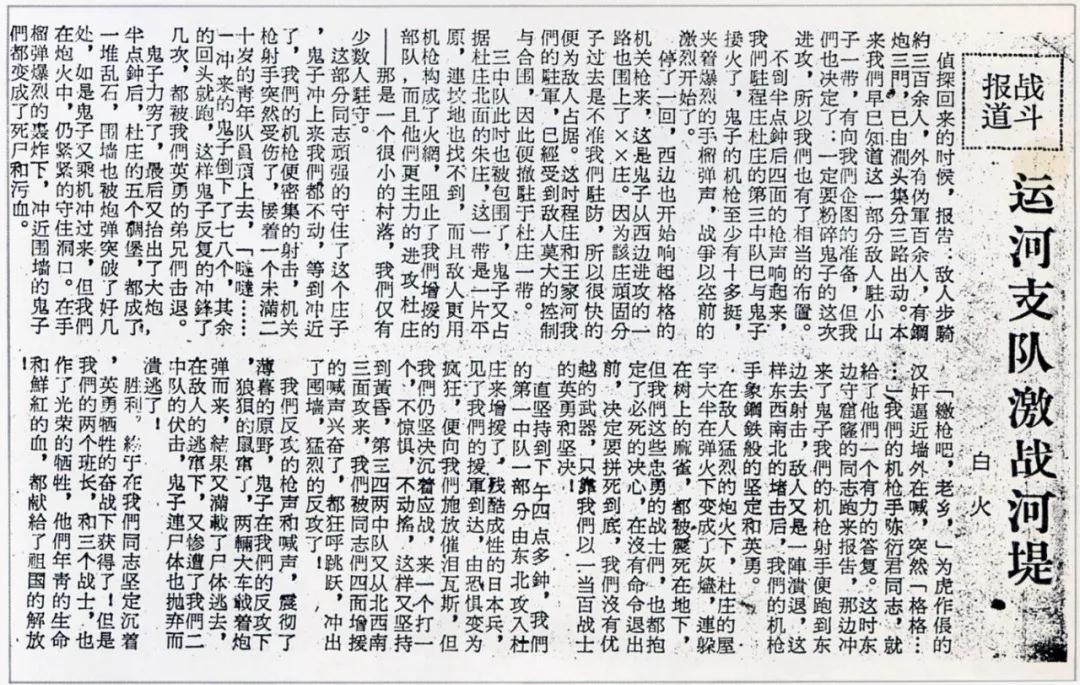 战斗
报道
运河支队激战河堤
白火
侦探回来的时候，报告：敌人步騎
約三百余人，外有伪軍百余人，有鋼
炮三門，已由澗头集分三路出动。本
来我們早已知道这一部分敌人駐小山
子一带，有向我們企图的准备，但我
們也决定了：一定要粉碎鬼子的这次
进攻，所以我們也有了相当的布置。
不到半点鐘后四面的枪声响起来，
我們駐程庄杜庄的第三中队已与鬼子
接火了，鬼子的机枪至少有十多挺，
夹着爆烈的手榴弹声，战爭以空前的
激烈开始了。
停了一回，西边也开始响起格格的
机关枪来，这是鬼子从西边进攻的一
路也围上了××庄。因为該庄頑固分
子过去是不准我們駐防，所以很快的
便为敌人占据。这时程庄和王家河我
們的駐軍，已經受到敌人莫大的控制
与合围，因此便撤駐于杜庄一带。
三中队此时也被包围了，鬼子又占
据杜庄北面的朱庄，这一带是一片平
原，連坟地也找不到，而且敌人更用
机枪构成了火網，阻止了我們增援的
部队，而且他們更主力的进攻杜庄
——那是一个很小的村落，我們仅有
少数人駐守。
这部分同志頑强的守住了这个庄子
，鬼子冲上来我們都不动，等到冲近
了，我們的机枪便密集的射击，机关
枪射手突然受伤了，接着一个未滿二
十岁的青年队員頂上去，「噠噠……
一冲来的鬼子倒下了七八个，其余
的回头就跑，这样鬼子反复的冲鋒了
几次，都被我們英勇的弟兄們击退。
鬼子力穷了，最后又抬出了大炮，
半点鐘后，杜庄的五个碉堡，都成了
一堆乱石，围墙也被炮弹突破了好几
处，如是鬼子又乘机冲过来，但我們
在炮火中，仍紧紧的守住洞口。在手
榴弹爆烈的轟炸下，冲近围墙的鬼子
們都变成了死尸和污血。
「繳枪吧，老乡，」为虎作倀的
汉奸逼近墙外在喊，突然「格格…
…」我們的机枪手弥衍君同志，就
給了他們一个有力的答复。这时东
边守窟窿的同志跑来报告，那边冲
来了鬼子我們的机枪射手便跑到东
边去射击，敌人又是一陣潰退，这
样东西南北的堵击后，我們的机枪
手象鋼鉄般的坚定和英勇。
在敌人猛烈的炮火下，杜庄的屋
宇大半在弹火下变成了灰燼，連躲
在树上的麻雀，都被震死在地下，
但我們这些忠勇的战士們，也都抱
定了必死的决心，在沒有命令退出
前，决定要拼死到底，我們沒有优
越的武器，只靠我們以一当百战士
的英勇和坚决！
直坚持到下午四点多鐘，我們
的第一中队一部分由东北攻入杜
庄来增援了，残酷成性的日本兵，
见了我們的援軍到达，由恐惧变为
疯狂，便向我們施放催泪瓦斯，但
我們仍坚决沉着应战，来一个打一
个，不惊惧，不动搖，这样又坚持
到黄昏，第三四两中队又从北西南
三面攻来，我們被同志們四面增援
的喊声兴奋了，都狂呼跳跃，冲出
了围墙，猛烈的反攻了！
我們反攻的枪声和喊声，震彻了
薄暮的原野，鬼子在我們的反攻下
，狼狽的鼠窜了，两輛大车載着炮
弹而来，結果又滿載了尸体逃去，
在敌人的逃窜下，又惨遭了我們二
中队的伏击，鬼子連尸体也抛弃而
潰逃了！
胜利，終于在我們同志坚定沉着
，英勇牺牲的奋战下获得了！但是
我們的两个班长，和三个战士，也
作了光荣的牺牲，他們年青的生命
和鮮紅的血，都献給了祖国的解放
！